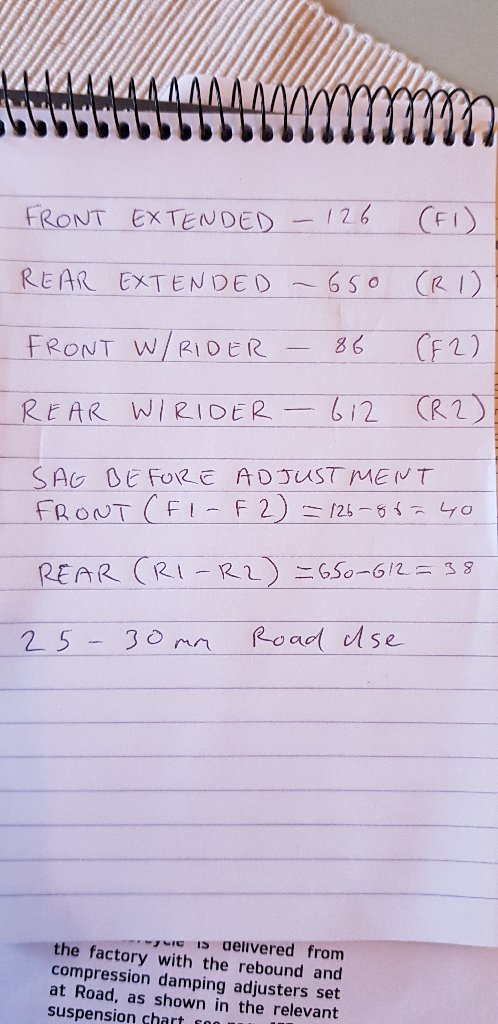 FRONT EXTENDED - 126 (F1)
REAR EXTENDED - 650 (R1)
FRONT W/RIDER - 86 (F2)
REAR W/RIDER - 612 (R2)
SAG BEFORE ADJUSTMENT
FRONT (F1-F2) = 126-86 = 40
REAR (R1-R2) = 650-612 = 38
25 - 30mm Road Use
is delivered from
the factory with the rebound and
compression damping adjusters set
at Road, as shown in the relevant
suspension chart